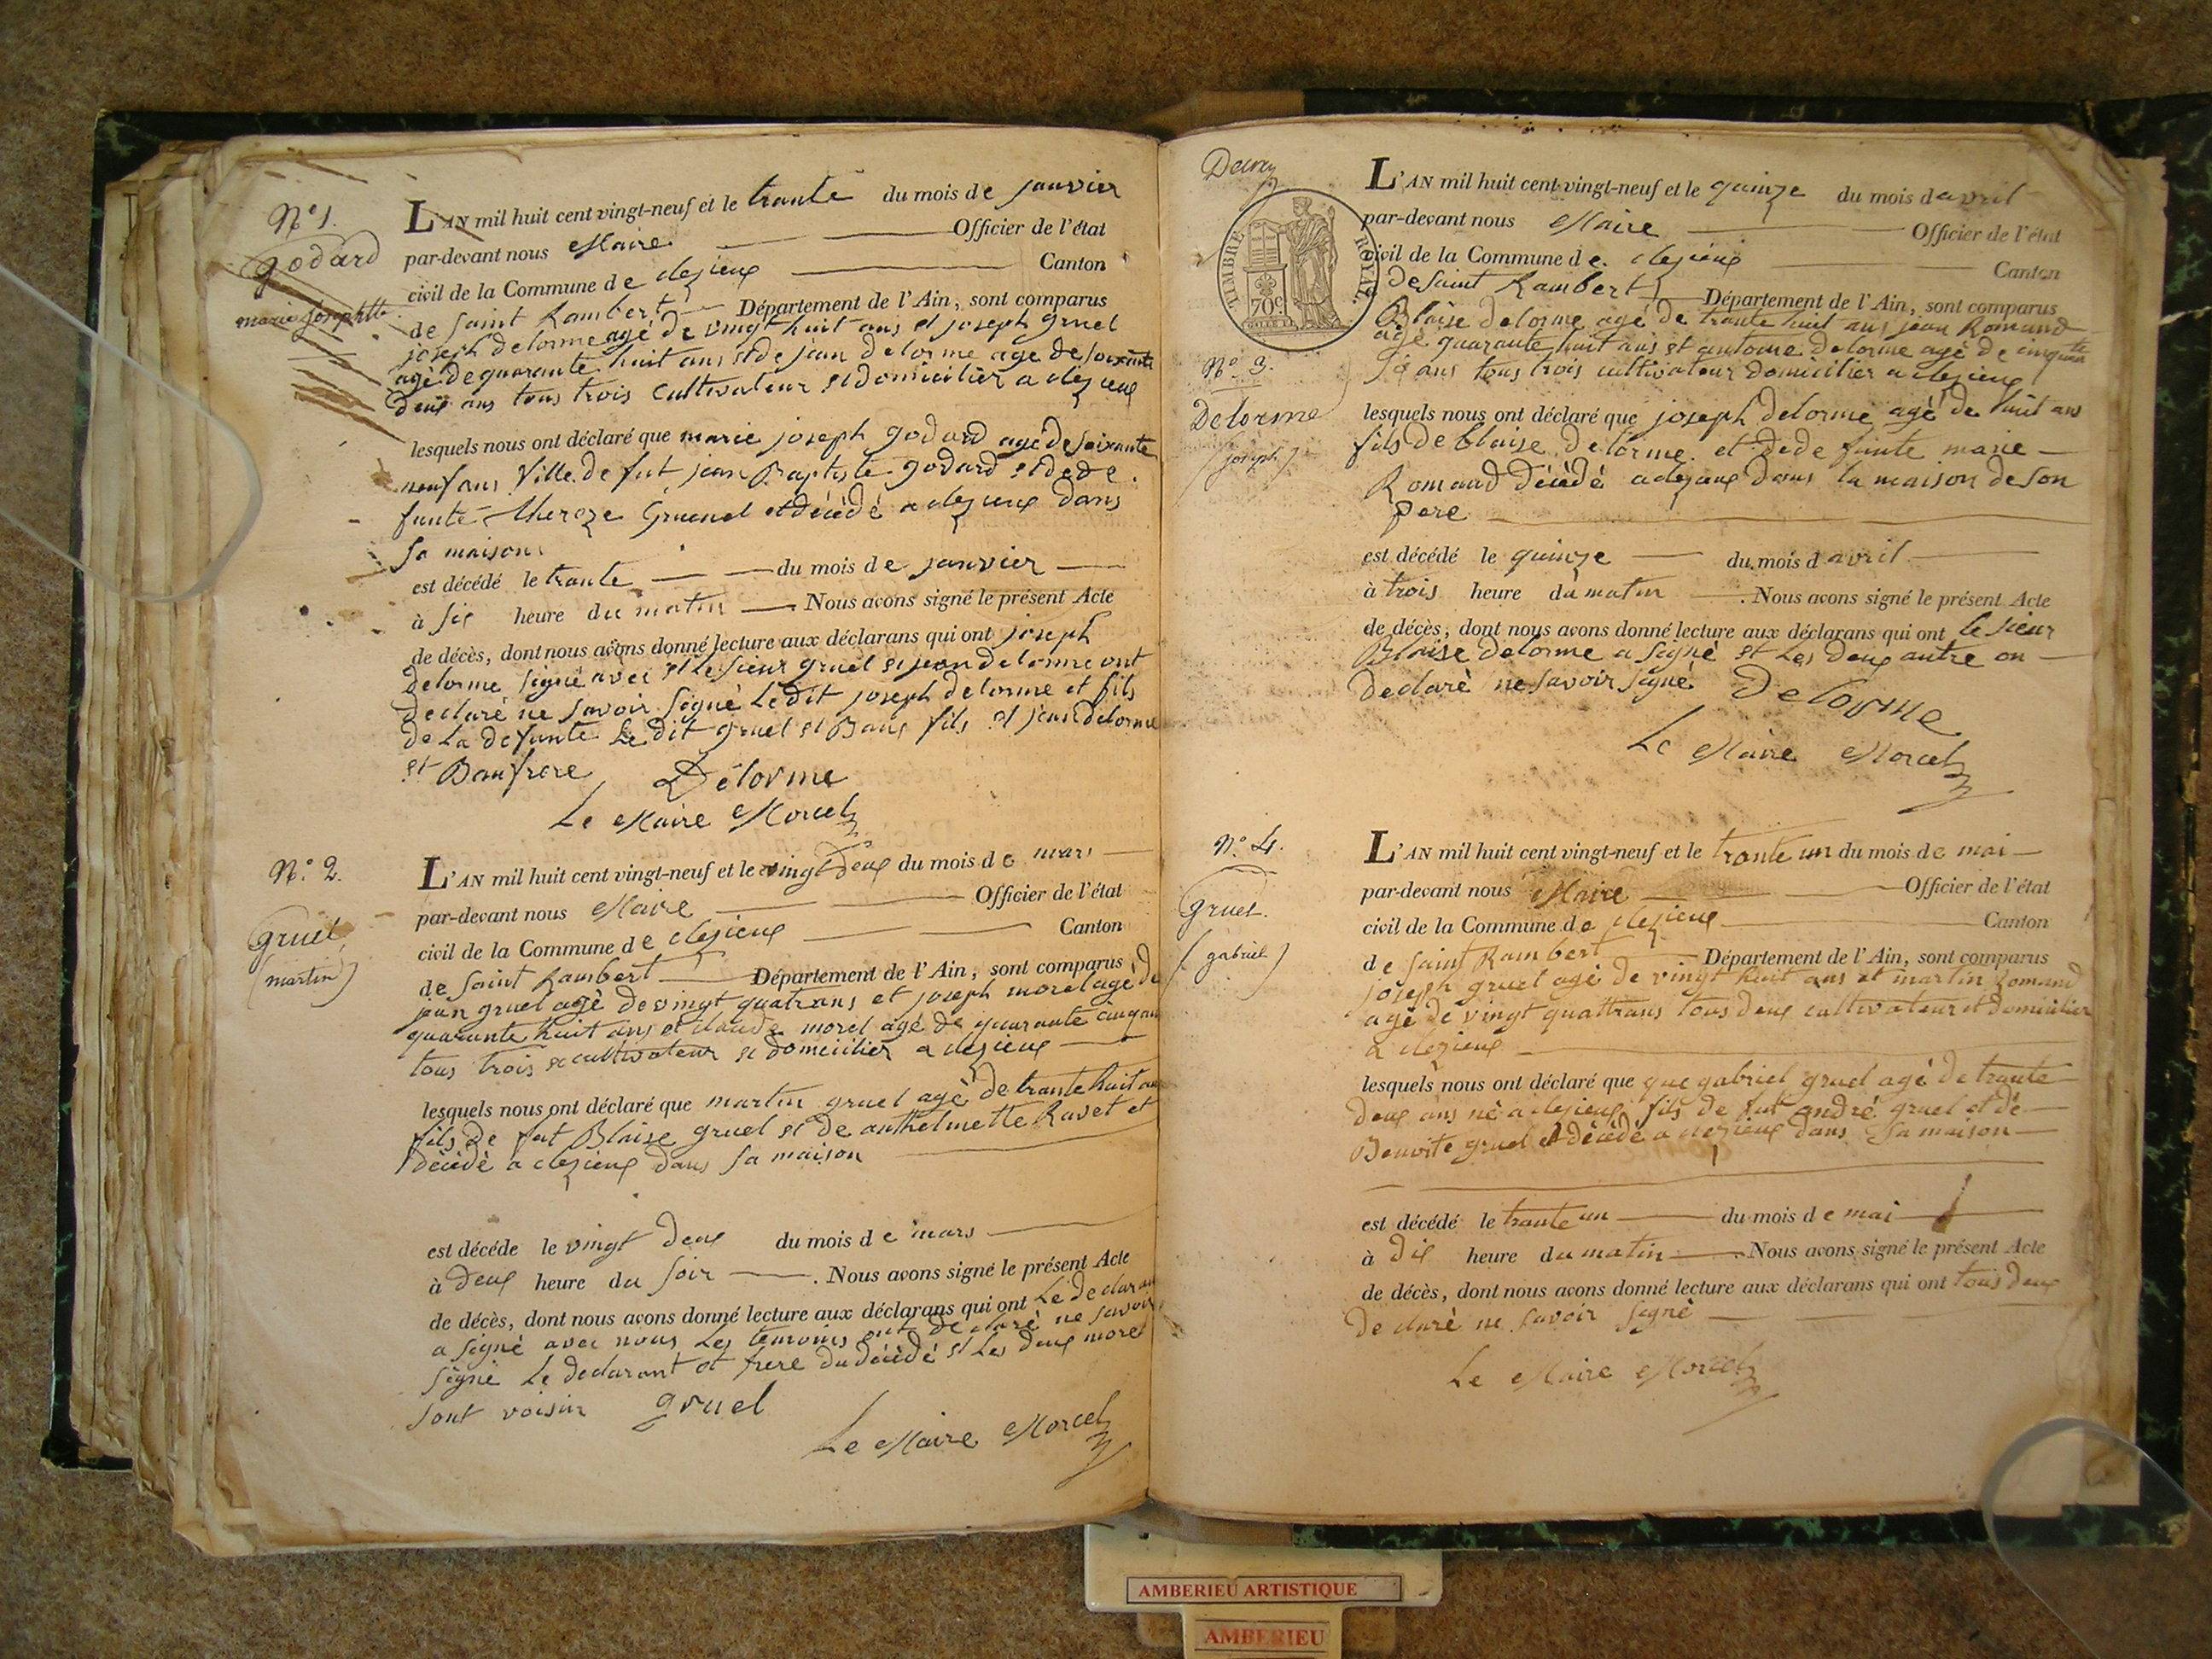 N.° 1.
godard
marie josephtte
L'AN mil huit cent vingt-neuf et le trante du mois de janvier
par-devant nous Maire Officier de l'état
civil de la Commune de clezieux Canton
de Saint Rambert Département de l'Ain, sont comparus
joseph delorme agé de vingt huit ans et joseph gruel
agé de quarante huit ans et de jean delorme agé de soixante
deux ans tous trois cultivateur et domicilier a clezieux
lesquels nous ont déclaré que marie joseph godard agé de soixante
neuf ans ville de fut jean Baptiste godard et de de
funtethereze et décédé a clezieux dans
sa maison
est décédé le trante du mois de janvier
à six heure du matin Nous avons signé le présent Acte
de décès, dont nous avons donné lecture aux déclarans qui ont joseph
delorme signé avec et le sieur gruel et jean delorme ont
declaré ne savoir signé Le dit joseph delorme et fils
de La defunte Le dit gruel et Baux fils et jean delorme
et Baufrere Delorme
Le Maire Morcel
N.° 2.
gruel
(martin)
L'AN mil huit cent vingt-neuf et le vingt deux du mois de mars
par-devant nous Maire Officier de l'état
civil de la Commune de clezieux Canton
de Saint Rambert Département de l'Ain, sont comparus
jean gruel agé de vingt quatrans et joseph morel agé de
quarante huit ans et claude morel agé de quarante cinq ans
tous trois cultivateur et domicilier a clezieux
lesquels nous ont déclaré que martin gruel agé de trante huit ans
fils de fut Blaise gruel et de anthelmette Ravet et
décédé a clezieux dans sa maison
est décédé le vingt deux du mois de mars
à deux heure du soir . Nous avons signé le présent Acte
de décès, dont nous avons donné lecture aux déclarans qui ont Le declarant
a signé avec nous Les temoins ont declaré ne savoir
signé Le declarant et frere du décédé et Les deux morel
sont voisin gruel
Le Maire Morcel
TIMBRE ROYAL.
70c.
N.° 3.
Delorme
(joseph)
L'AN mil huit cent vingt-neuf et le quinze du mois d avril
par-devant nous Maire Officier de l'état
civil de la Commune de clezieux Canton
de Saint Rambert Département de l'Ain, sont comparus
Blaise delorme agé de trante huit ans jean Romand
agé quarante huit ans et antoine delorme agé de cinquante
six ans tous trois cultivateur domicilier a clezieux
lesquels nous ont déclaré que joseph delorme agé de huit ans
fils de blaise delorme et de de funte marie
Romand décédé a clezieux dans la maison de son
pere
est décédé le quinze du mois d avril
à trois heure du matin . Nous avons signé le présent Acte
de décès, dont nous avons donné lecture aux déclarans qui ont le sieur
Blaise delorme a signé et Les deux autre on
declaré ne savoir signé Delorme
Le Maire Morcel
N.° 4.
gruel
(gabriel)
L'AN mil huit cent vingt-neuf et le trante un du mois de mai
par-devant nous Maire Officier de l'état
civil de la Commune de clezieux Canton
de Saint Rambert Département de l'Ain, sont comparus
joseph gruel agé de vingt huit ans et martin Romand
agé de vingt quattrans tous deux cultivateur et domicilier
a clezieux
lesquels nous ont déclaré que que gabriel gruel agé de trante
deux ans né a clezieux fils de fut andré gruel et de
Benoite gruel et décédé a clezieux dans sa maison
est décédé le trante un du mois de mai
à dix heure du matin . Nous avons signé le présent Acte
de décès, dont nous avons donné lecture aux déclarans qui ont tous deux
declaré ne savoir signé
Le Maire Morcel
AMBERIEU ARTISTIQUE
AMBERIEU